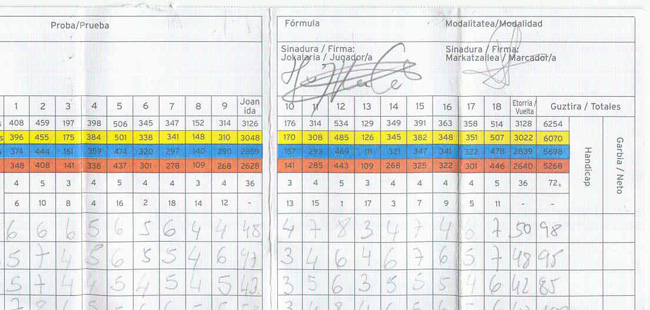 Proba/Prueba
Fórmula Modalitatea/Modalidad
Sinadura / Firma: Sinadura / Firma:
Jokalaria / Jugador/a Markatzailea / Marcador/a
1 2 3 4 5 6 7 8 9 Joan ida 10 11 12 13 14 15 16 17 18 Etorria / Vuelta Guztira / Totales
408 459 197 398 506 345 347 152 314 3126 176 314 534 129 349 391 347 358 514 3128 6254
396 455 175 384 501 338 341 148 310 3048 170 308 485 126 345 382 348 351 507 3022 6070
374 444 161 359 474 320 297 140 290 2859 167 293 469 111 331 341 322 478 2839 5698
348 408 141 336 437 301 278 109 268 2628 141 285 443 109 268 325 322 301 446 2640 5268
4 5 3 4 5 4 4 3 4 36 3 4 5 3 4 4 4 4 5 36 72
6 10 8 4 16 2 18 14 12 - 13 15 1 17 3 7 9 5 11 - -
Handicap
Garbia / Neto
6 6 6 5 6 5 6 4 4 48 4 7 8 3 4 7 4 6 7 50 98
5 7 4 5 6 5 5 4 6 47 3 4 6 4 6 7 6 5 7 48 95
5 7 4 4 5 4 5 4 5 43 3 5 6 3 5 5 5 4 6 42 85